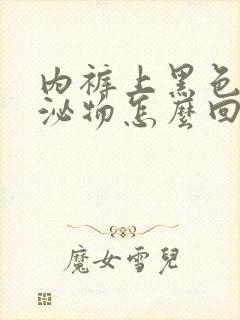 內褲上黑色
泌物怎麼回
魔女雪兒